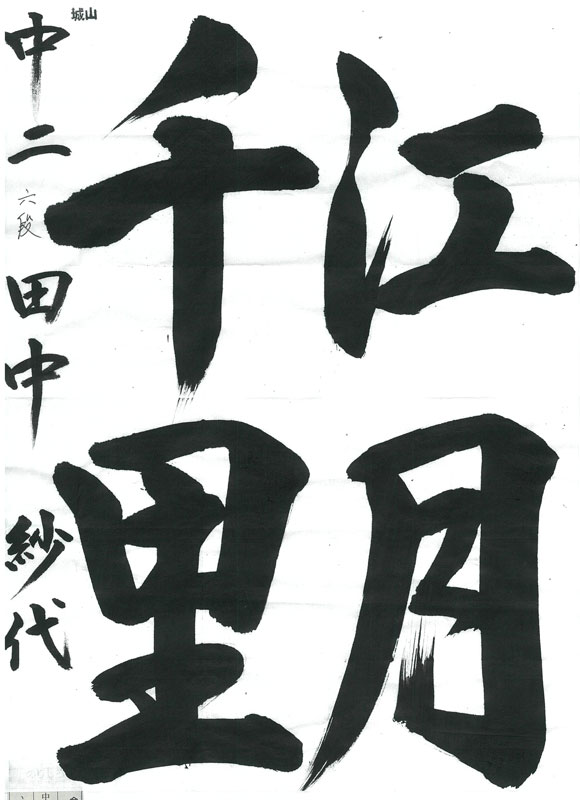 江月
千里
中二 六段 田中 紗代
城山